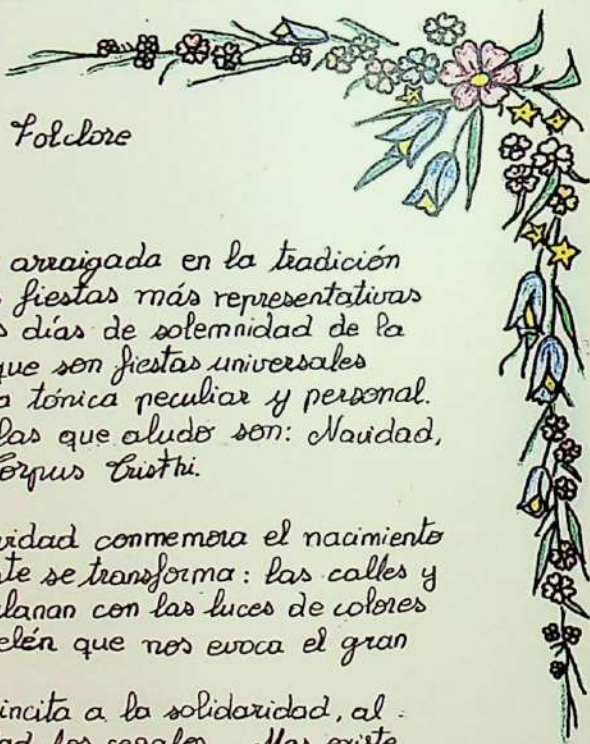 Folclore
arraigada en la tradición
fiestas más representativas
días de solemnidad de la
que son fiestas universales
tónica peculiar y personal.
las que aludo son: Navidad,
Corpus Cristhi.
conmemora el nacimiento
se transforma: las calles y
con las luces de colores
que nos evoca el gran
incita a la solidaridad, al
los